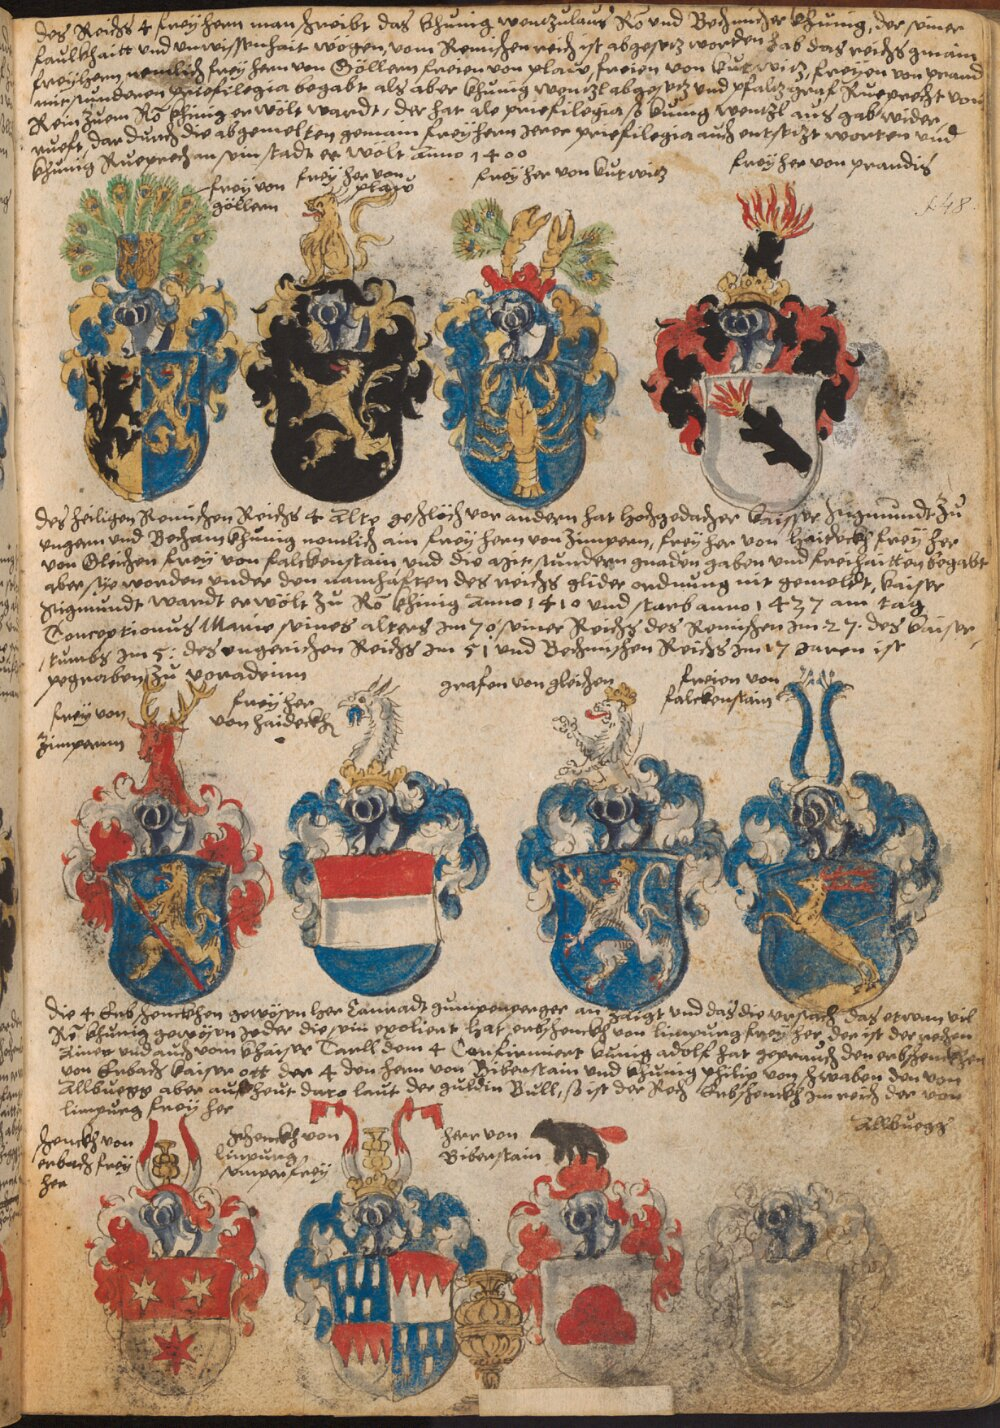 des Reichs 4 freyhern man schreibt das khunig wentzulaus Rō und Bechmischer khunig, der seiner
faulkhaitt und unwissenhait wögen vom Remischen reich ist abgesetz worden hab das reichs gmain
freyhern nemlich freyhern von Göllern freien von plaw, freien von kutwitz, freyen von prand
mit sunderen priefilegia begabt als aber khunig wentzl abgesetz und pfaltzgraf Rueprecht von
Rein zuem Rō khinig erwölt wardt, der hat ale priefilegia so kunig wentzl aus gab wider
rueft, dardurch die abgemelten gemain freyhern jerer priefilegia auch entsetzt worten und
khunig Rueprech an sein stadt erwölt Anno 1400
frey von göllern
frey her von plaw
frey her von kutwitz
frey her von prandis
148
des heiligen Remischen Reichs 4 Alte geschlöch vor andern hat hochgedacher kaisser Sigmundt zu
ungern und Becham khunig nemlich ain freyhern von Zimpern, freyher von haideckh frey her
von Gleichen frey von falckenstain und die mit sundern gnaden gaben und freihaitten begabt
aber sye worden under den namhaften des reichs glider ordnung nit gemeldt, kaiser
Sigmundt wardt erwölt zu Rō khinig Anno 1410 und starb anno 1437 am tag
Conceptionus Marie seines alters im 70 seiner Reichs des Remischen im 27. des kaiser
stumbs im 5. des ungerischen Reichs im 51 und Bechmschen Reichs im 17 Jaren ist
pegraben zu voradeinn
frey von Zimperenn
frey her von haideckh
grafen von gleichen
freien von falckenstain
die 4 Erbschenckhen gewösen her Conradt gumpenperger an zaigt und das die ursach das etwan vil
Rō khunig gewesen jeder die sein epoliert hat, erbschenckh von limpurg freyher, der ist der rechen
Ainer und auch vom khaiser Carll dem 4 Confirmiert kunig adolf hat gepraucht den erbschenckhen
von Erbach kaiser ott der 4 den hern von Biberstain und khunig philip von schwaben den von
Allbuegg aber auf heut dato laut der guldin Bull, so ist der Rech Erbschenckh im reich der von
limpurg frey her
Allbuegg
schenckh von erbach frey her
schenckh von limpurg semper frey
herr von Biberstain